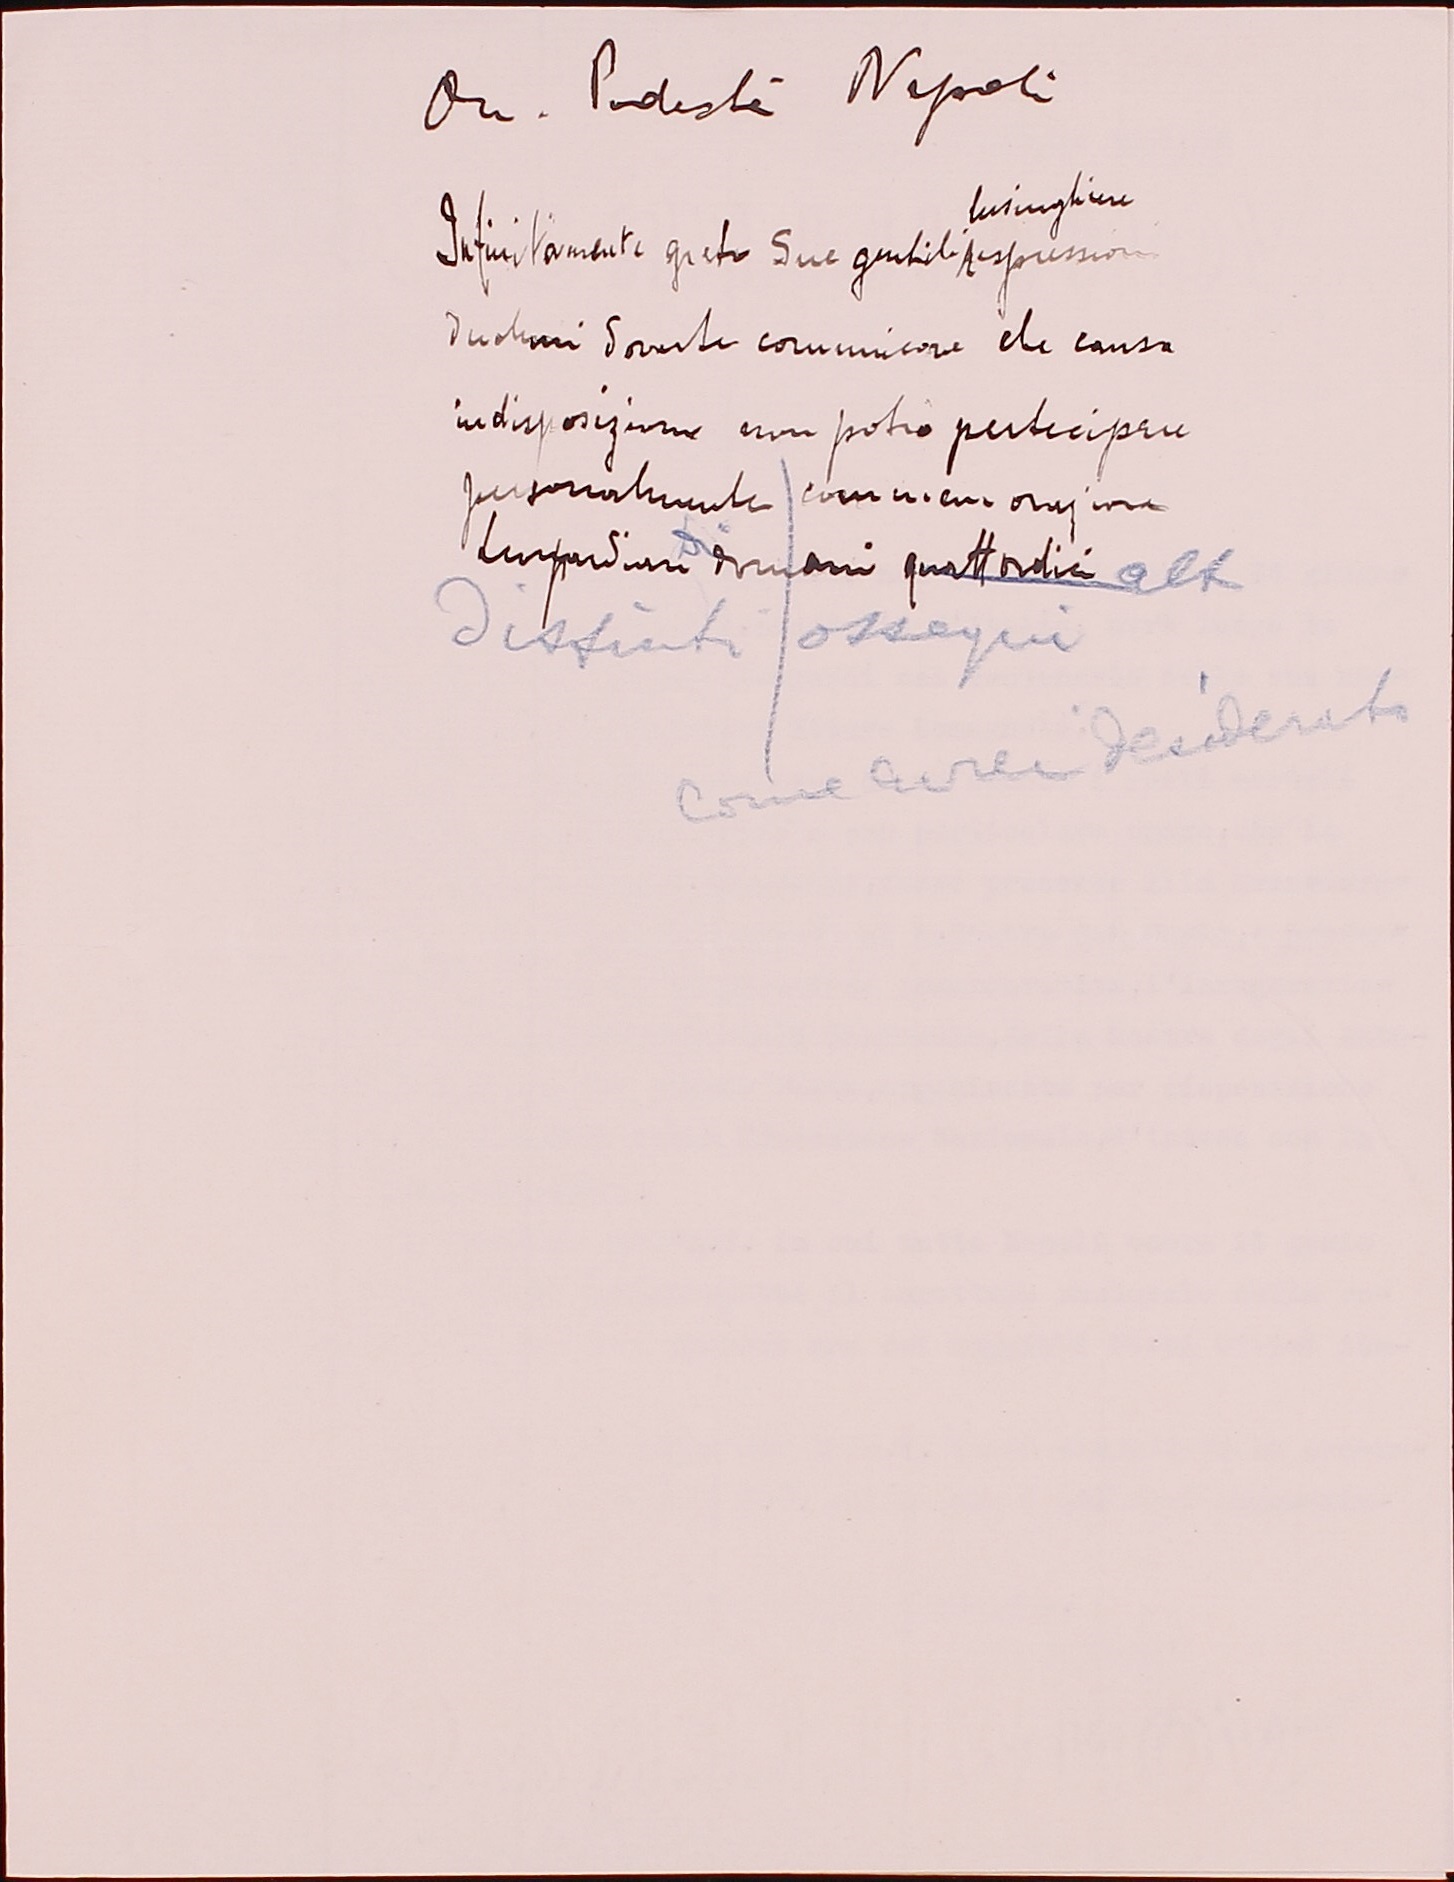 On. Podestà Napoli
lusinghiere
Infinitamente grato Sue gentili espressioni
duolmi doverle comunicare che causa
indisposizione non potrò partecipare
personalmente commemorazione
di domani quattordici alt
Distinti ossequi
come avrei desiderato